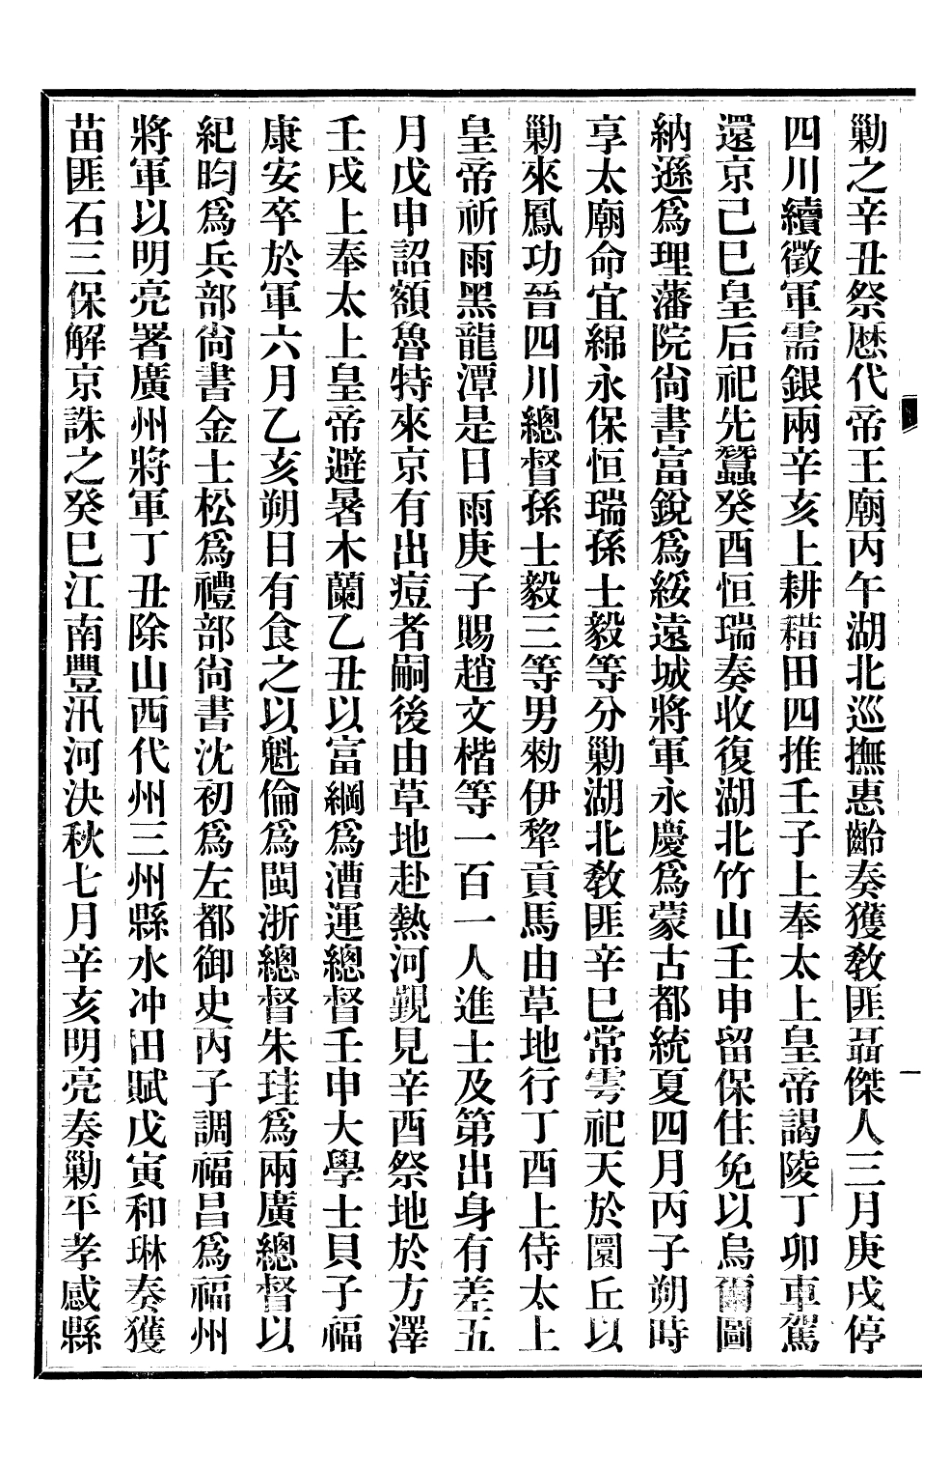 勦之辛丑祭歷代帝王廟丙午湖北巡撫惠齡奏獲教匪聶傑人三月庚戌停
四川續徵軍需銀兩辛亥上耕耤田四推壬子上奉太上皇帝謁陵丁卯車駕
還京己巳皇后祀先蠶癸酉恒瑞奏收復湖北竹山壬申留保住免以烏爾圖
納遜爲理藩院尙書富銳爲綏遠城將軍永慶爲蒙古都統夏四月丙子朔時
享太廟命宜綿永保恒瑞孫士毅等分勦湖北教匪辛巳常雩祀天於圜丘以
勦來鳳功晉四川總督孫士毅三等男勑伊犂貢馬由草地行丁酉上侍太上
皇帝祈雨黑龍潭是日雨庚子賜趙文楷等一百一人進士及第出身有差五
月戊申詔額魯特來京有出痘者嗣後由草地赴熱河覲見辛酉祭地於方澤
壬戌上奉太上皇帝避暑木蘭乙丑以富綱爲漕運總督壬申大學士貝子福
康安卒於軍六月乙亥朔日有食之以魁倫爲閩浙總督朱珪爲兩廣總督以
紀昀爲兵部尙書金士松爲禮部尙書沈初爲左都御史丙子調福昌爲福州
將軍以明亮署廣州將軍丁丑除山西代州三州縣水冲田賦戊寅和琳奏獲
苗匪石三保解京誅之癸巳江南豐汛河決秋七月辛亥明亮奏勦平孝感縣
一